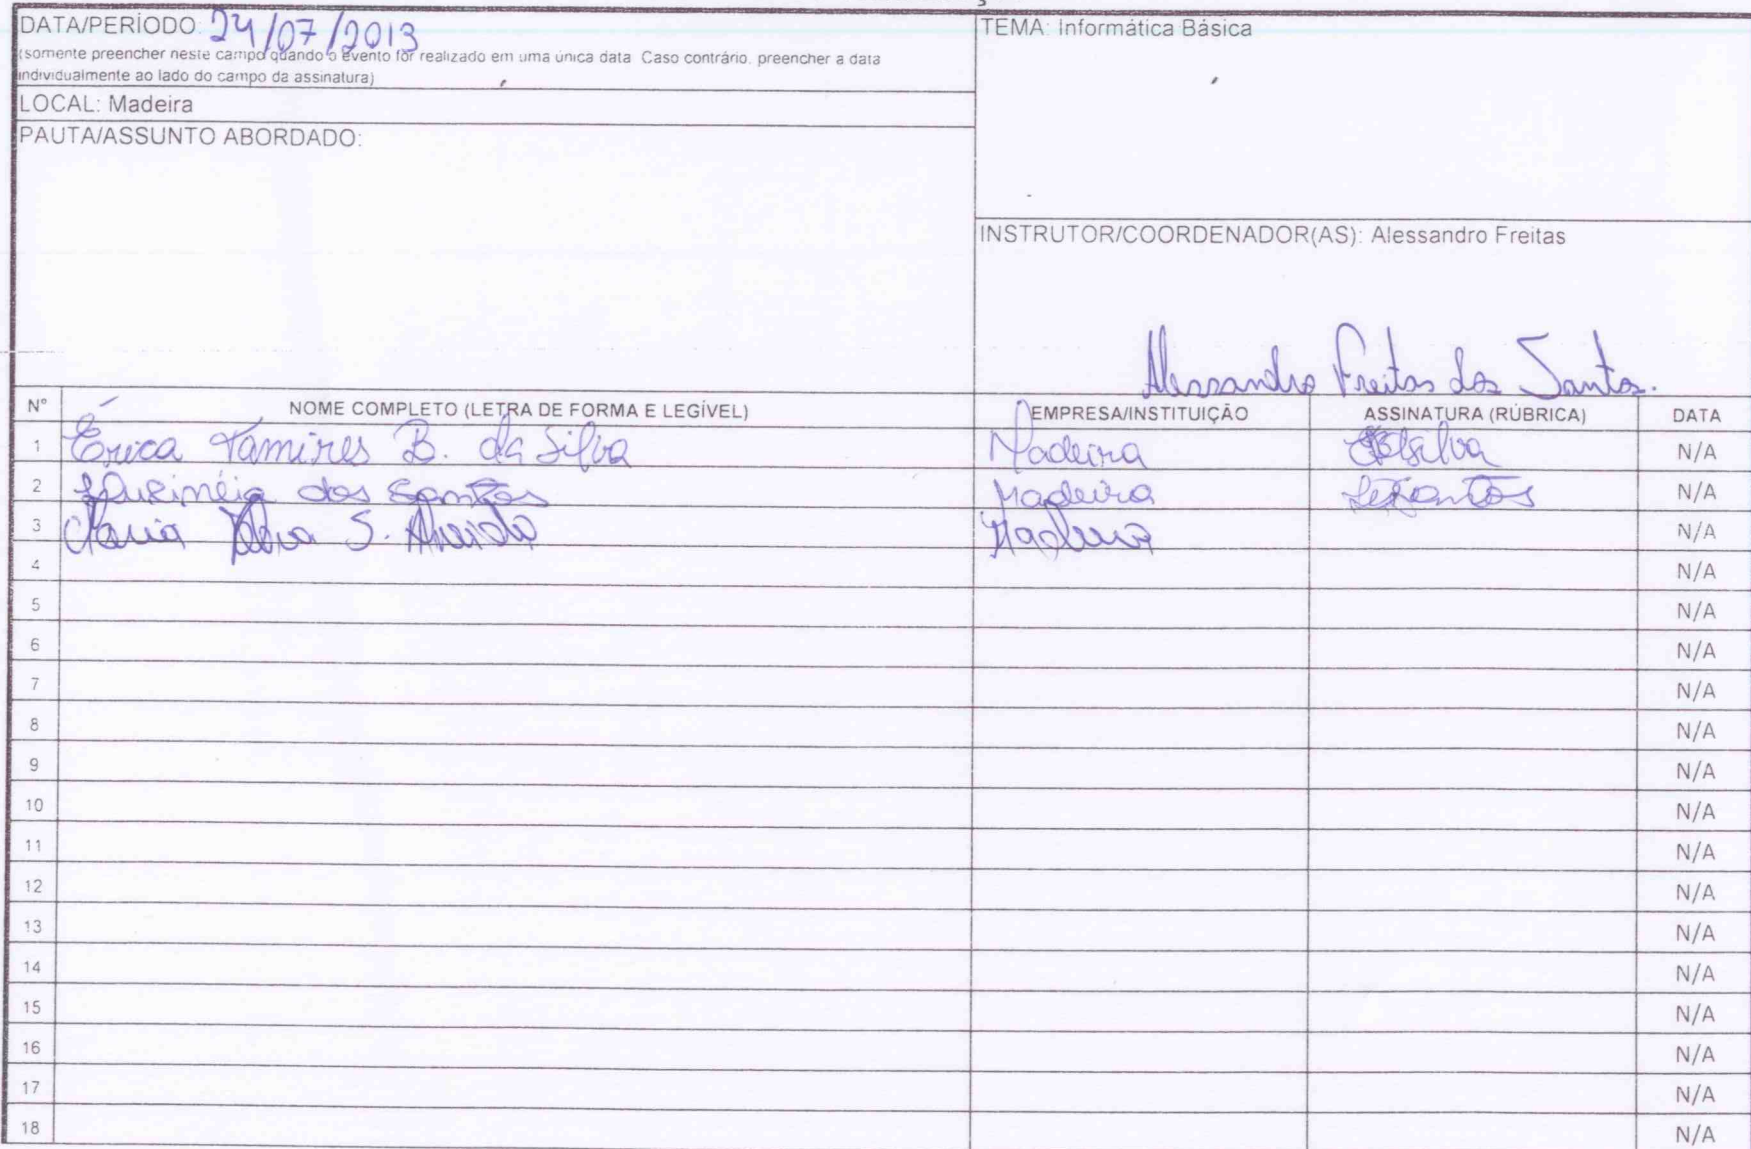 DATA/PERÍODO: 24/07/2013
(somente preencher neste campo quando o evento for realizado em uma única data. Caso contrário, preencher a data
individualmente ao lado do campo da assinatura)
TEMA: Informática Básica
LOCAL: Madeira
PAUTA/ASSUNTO ABORDADO:
INSTRUTOR/COORDENADOR(AS): Alessandro Freitas
Alessandro Freitas dos Santos.
N° NOME COMPLETO (LETRA DE FORMA E LEGÍVEL) EMPRESA/INSTITUIÇÃO ASSINATURA (RÚBRICA) DATA
1 Érica Tamires B. da Silva Madeira N/A
2 dos Santos Madeira N/A
3 Maria S. Madeira N/A
4 N/A
5 N/A
6 N/A
7 N/A
8 N/A
9 N/A
10 N/A
11 N/A
12 N/A
13 N/A
14 N/A
15 N/A
16 N/A
17 N/A
18 N/A